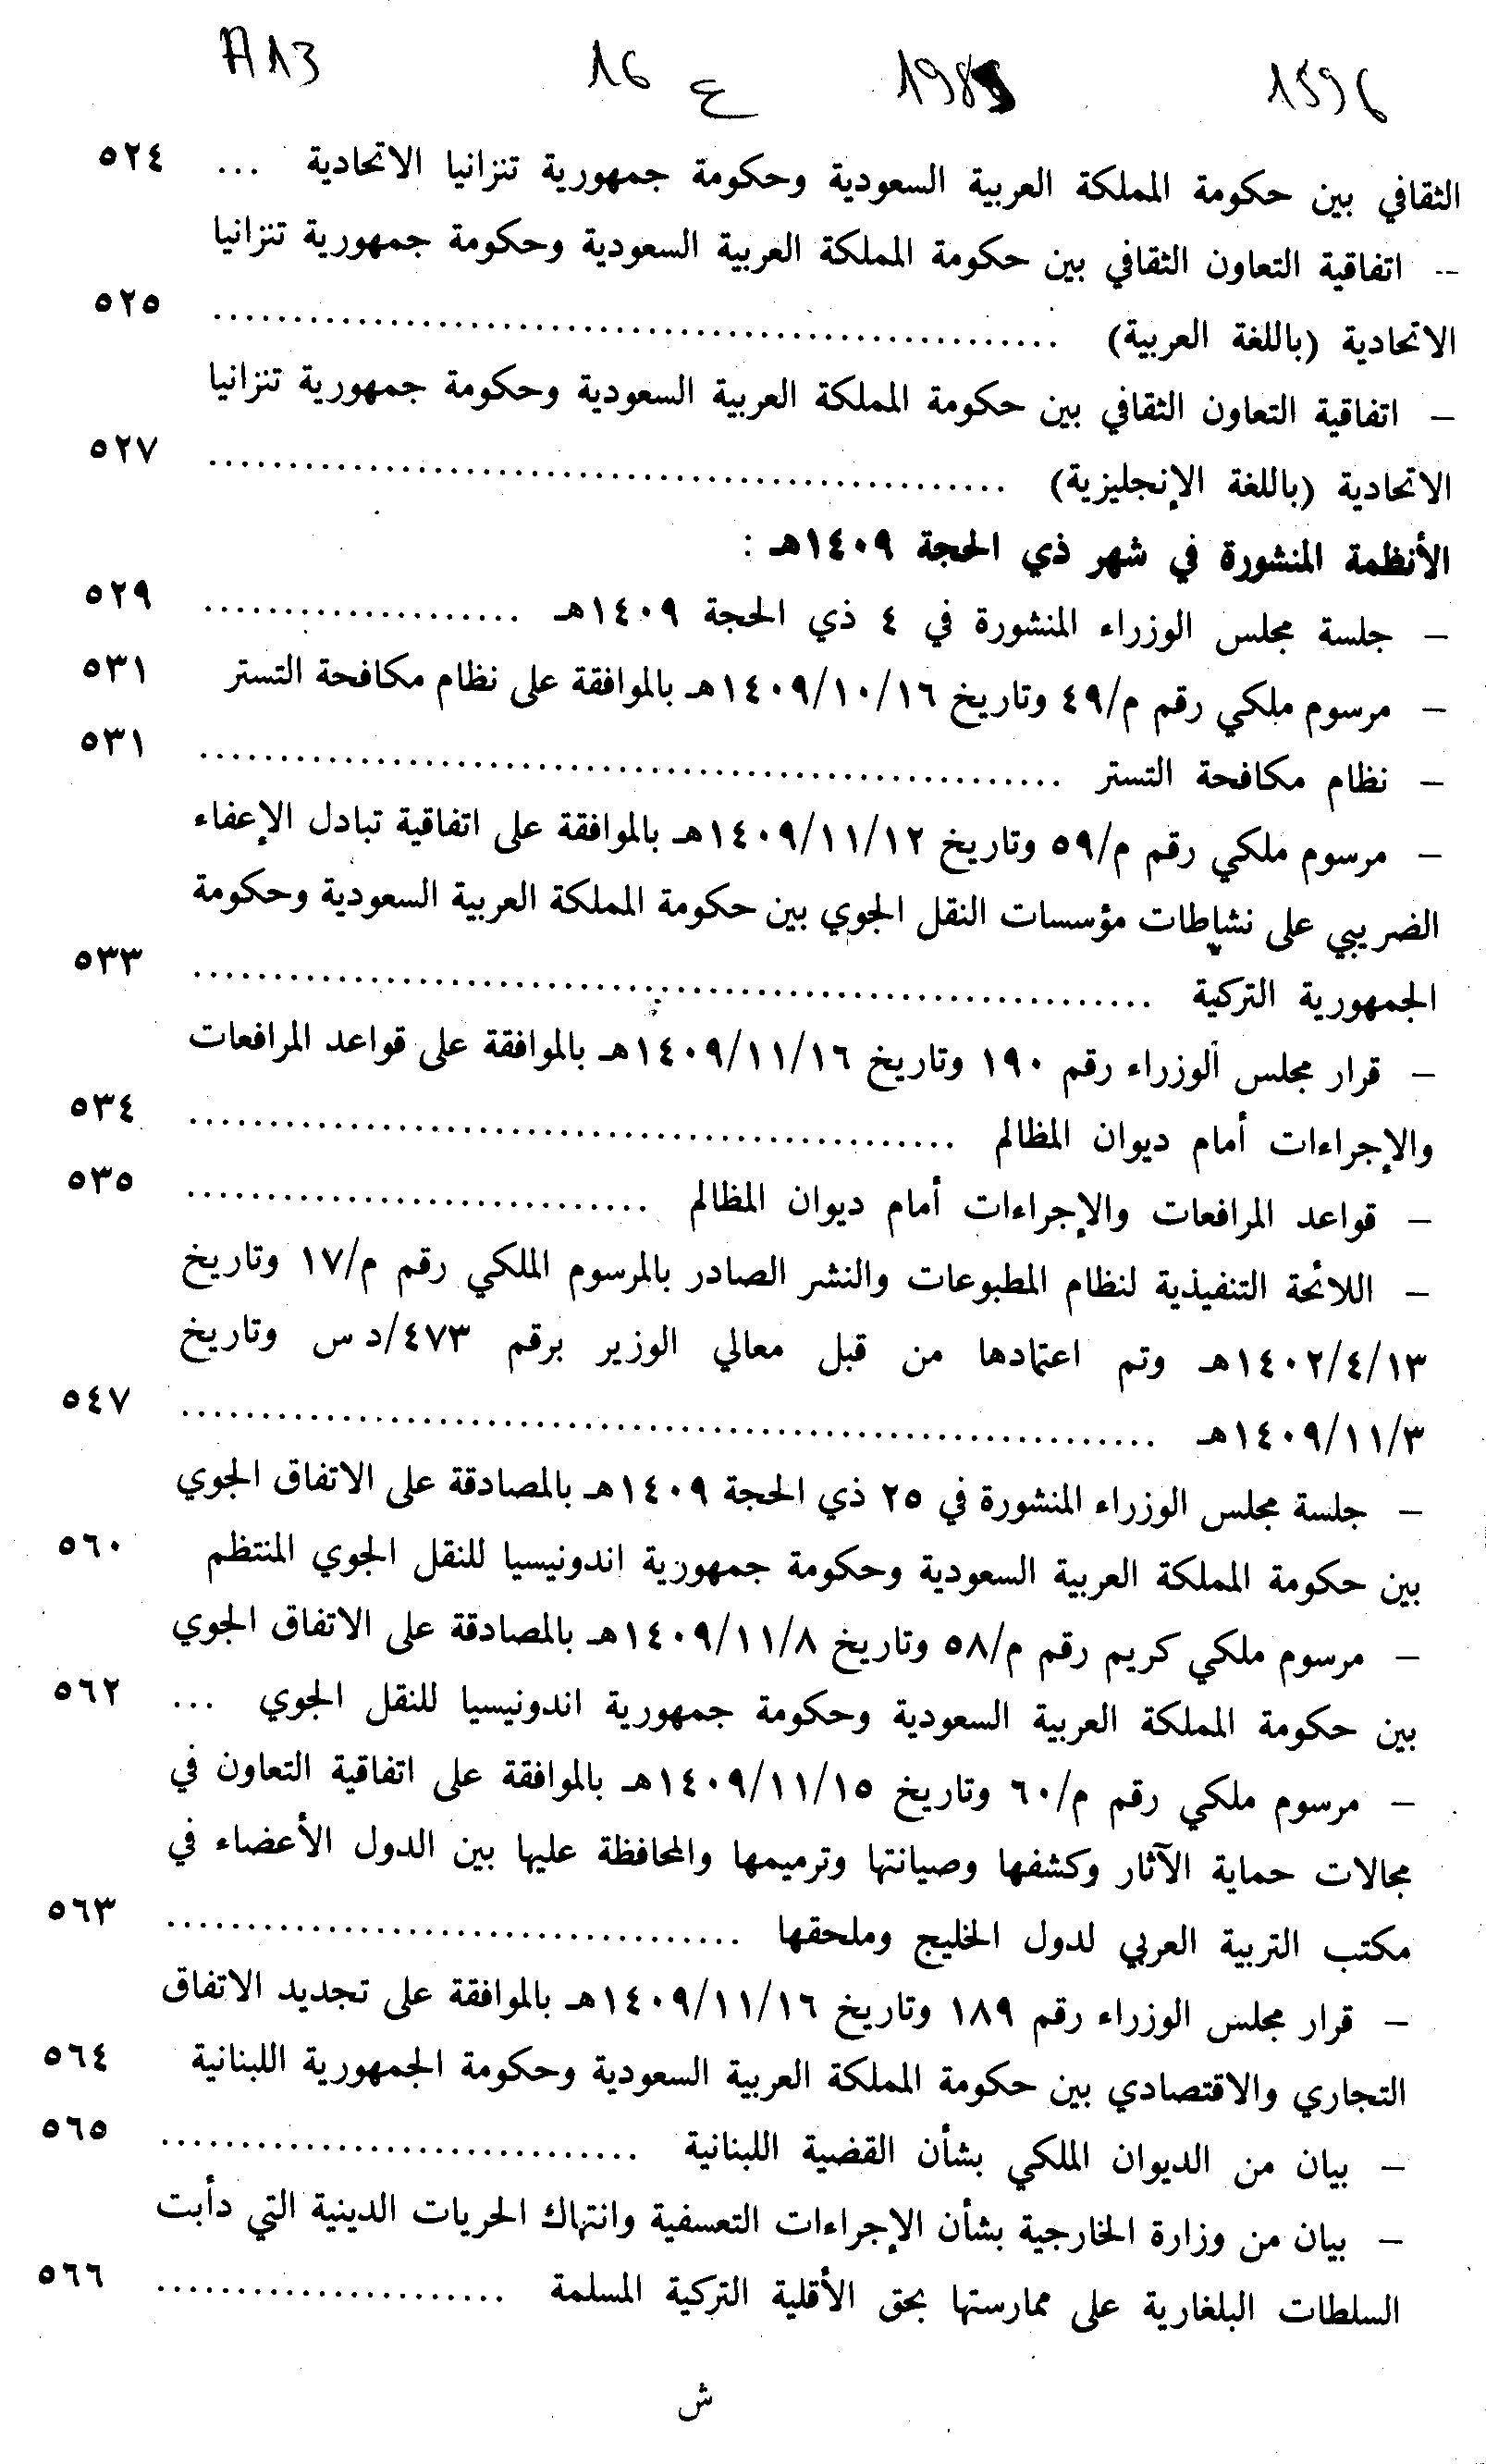 A13 16 ع 198 1596
الثقافي بين حكومة المملكة العربية السعودية وحكومة جمهورية تنزانيا الاتحادية ... ٥٢٤
-- اتفاقية التعاون الثقافي بين حكومة المملكة العربية السعودية وحكومة جمهورية تنزانيا
الاتحادية (باللغة العربية) ...................................................... ٥٢٥
– اتفاقية التعاون الثقافي بين حكومة المملكة العربية السعودية وحكومة جمهورية تنزانيا
الاتحادية (باللغة الإنجليزية) ................................................... ٥٢٧
الأنظمة المنشورة في شهر ذي الحجة ١٤٠٩هـ :
– جلسة مجلس الوزراء المنشورة في ٤ ذي الحجة ١٤٠٩هـ .................... ٥٢٩
– مرسوم ملكي رقم م/٤٩ وتاريخ ١٤٠٩/١٠/١٦هـ بالموافقة على نظام مكافحة التستر ٥٣١
– نظام مكافحة التستر ....................................................... ٥٣١
– مرسوم ملكي رقم م/٥٩ وتاريخ ١٤٠٩/١١/١٢هـ بالموافقة على اتفاقية تبادل الإعفاء
الضريبي على نشاطات مؤسسات النقل الجوي بين حكومة المملكة العربية السعودية وحكومة
الجمهورية التركية ............................................................. ٥٣٣
– قرار مجلس الوزراء رقم ١٩٠ وتاريخ ١٤٠٩/١١/١٦هـ بالموافقة على قواعد المرافعات
والإجراءات أمام ديوان المظالم ................................................. ٥٣٤
– قواعد المرافعات والإجراءات أمام ديوان المظالم ............................. ٥٣٥
– اللائحة التنفيذية لنظام المطبوعات والنشر الصادر بالمرسوم الملكي رقم م/١٧ وتاريخ
١٤٠٢/٤/١٣هـ وتم اعتمادها من قبل معالي الوزير برقم ٤٧٣/د س وتاريخ
١٤٠٩/١١/٣هـ .............................................................. ٥٤٧
– جلسة مجلس الوزراء المنشورة في ٢٥ ذي الحجة ١٤٠٩هـ بالمصادقة على الاتفاق الجوي
بين حكومة المملكة العربية السعودية وحكومة جمهورية اندونيسيا للنقل الجوي المنتظم ٥٦٠
– مرسوم ملكي كريم رقم م/٥٨ وتاريخ ١٤٠٩/١١/٨هـ بالمصادقة على الاتفاق الجوي
بين حكومة المملكة العربية السعودية وحكومة جمهورية اندونيسيا للنقل الجوي ... ٥٦٢
– مرسوم ملكي رقم م/٦٠ وتاريخ ١٤٠٩/١١/١٥هـ بالموافقة على اتفاقية التعاون في
مجالات حماية الآثار وكشفها وصيانتها وترميمها والمحافظة عليها بين الدول الأعضاء في
مكتب التربية العربي لدول الخليج وملحقها ..................................... ٥٦٣
– قرار مجلس الوزراء رقم ١٨٩ وتاريخ ١٤٠٩/١١/١٦هـ بالموافقة على تجديد الاتفاق
التجاري والاقتصادي بين حكومة المملكة العربية السعودية وحكومة الجمهورية اللبنانية ٥٦٤
– بيان من الديوان الملكي بشأن القضية اللبنانية .............................. ٥٦٥
– بيان من وزارة الخارجية بشأن الإجراءات التعسفية وانتهاك الحريات الدينية التي دأبت
السلطات البلغارية على ممارستها بحق الأقلية التركية المسلمة ...................... ٥٦٦
ش